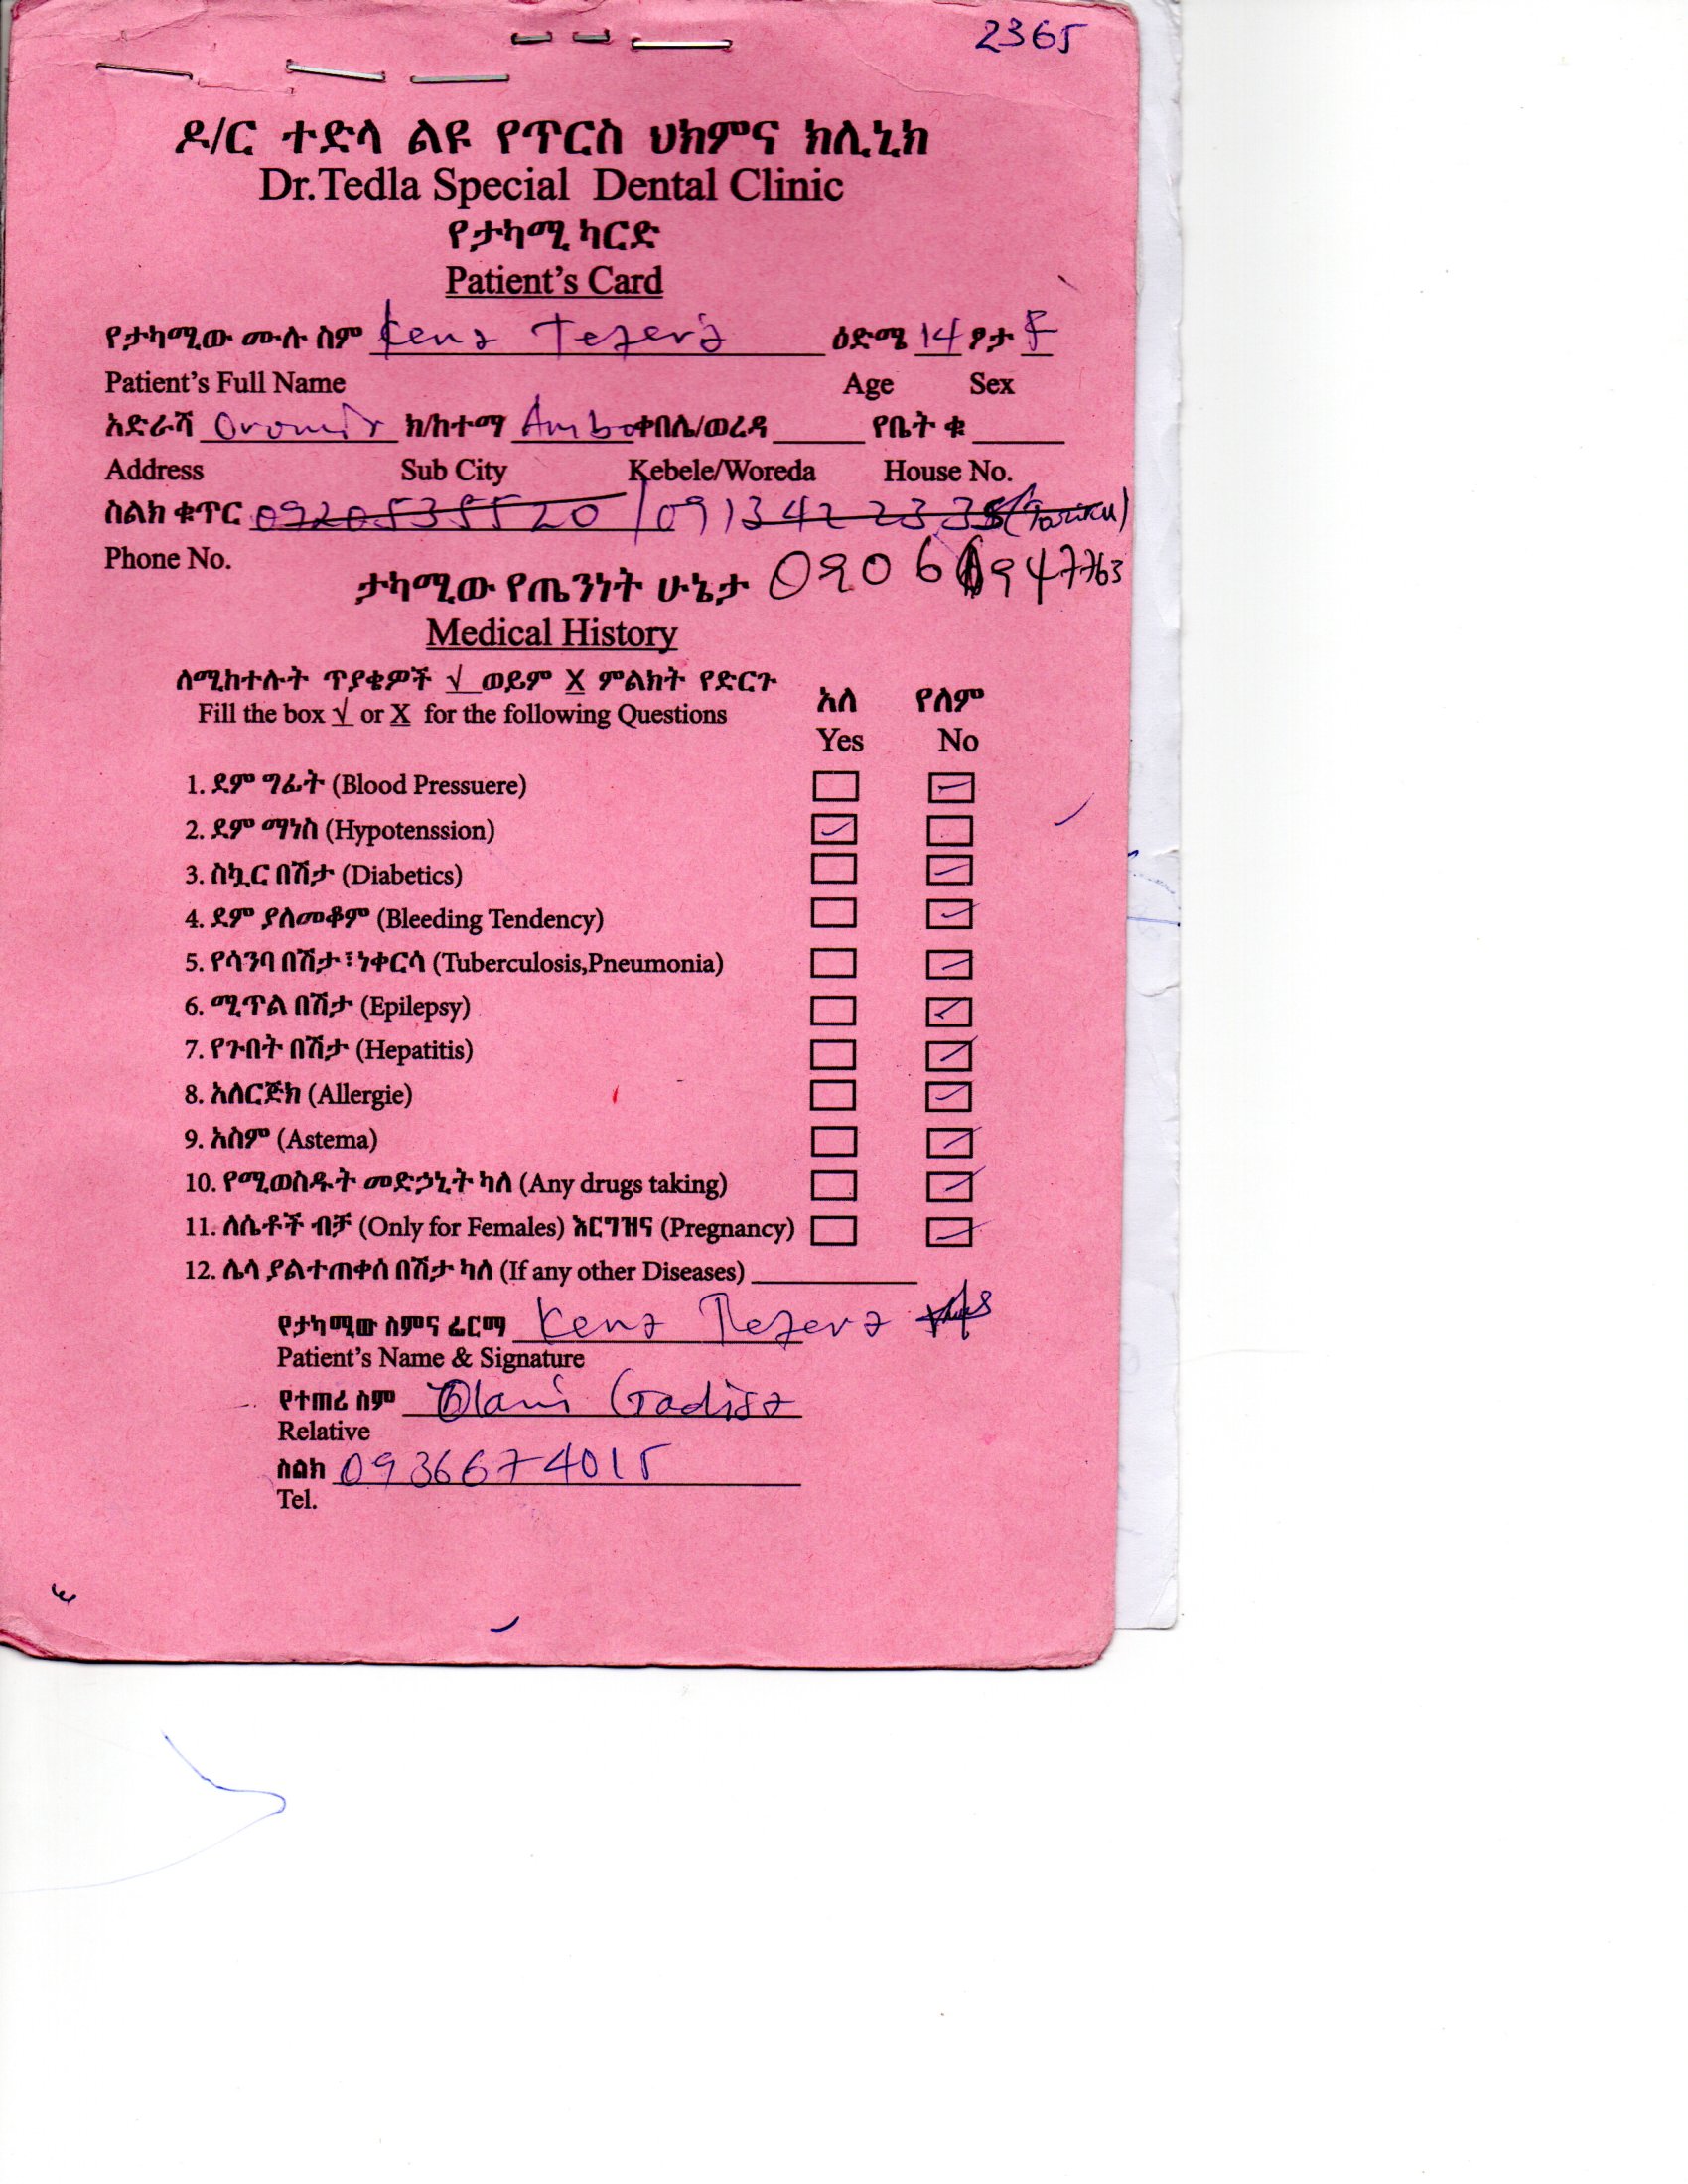 2365
ዶ/ር ተድላ ልዩ የጥርስ ህክምና ክሊኒክ
Dr.Tedla Special Dental Clinic
የታካሚ ካርድ
Patient's Card
የታካሚው ሙሉ ስም Kena Tefera ዕድሜ 14 ፆታ F
Patient's Full Name Age Sex
አድራሻ Oromia ክ/ከተማ Ambo ቀበሌ/ወረዳ የቤት ቁ
Address Sub City Kebele/Woreda House No.
ስልክ ቁጥር / (Tariku)
Phone No.
ታካሚው የጤንነት ሁኔታ
Medical History
ለሚከተሉት ጥያቄዎች √ ወይም X ምልክት የድርጉ
Fill the box √ or X for the following Questions
አለ የለም
Yes No
1. ደም ግፊት (Blood Pressuere)
2. ደም ማነስ (Hypotenssion)
3. ስኳር በሽታ (Diabetics)
4. ደም ያለመቆም (Bleeding Tendency)
5. የሳንባ በሽታ፣ነቀርሳ (Tuberculosis,Pneumonia)
6. ሚጥል በሽታ (Epilepsy)
7. የጉበት በሽታ (Hepatitis)
8. አለርጅክ (Allergie)
9. አስም (Astema)
10. የሚወስዱት መድኃኒት ካለ (Any drugs taking)
11. ለሴቶች ብቻ (Only for Females) እርግዝና (Pregnancy)
12. ሌላ ያልተጠቀሰ በሽታ ካለ (If any other Diseases)
የታካሚው ስምና ፊርማ Kena Tefera
Patient's Name & Signature
የተጠሪ ስም Olani Gadisa
Relative
ስልክ 0936674015
Tel.